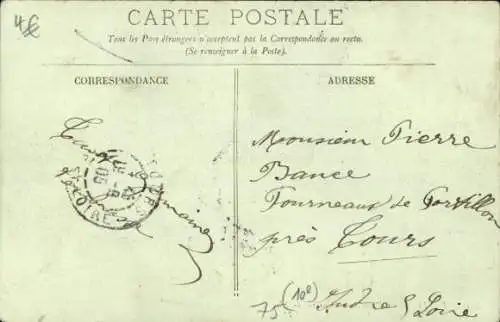 4€
CARTE POSTALE
Tous les Pays étrangers n'acceptent pas la Correspondance au recto.
(Se renseigner à la Poste).
CORRESPONDANCE
ADRESSE
Monsieur Pierre
Bance
Fourneaux de Portillon
près Tours
Indre & Loire
75 (10e)
TOURS